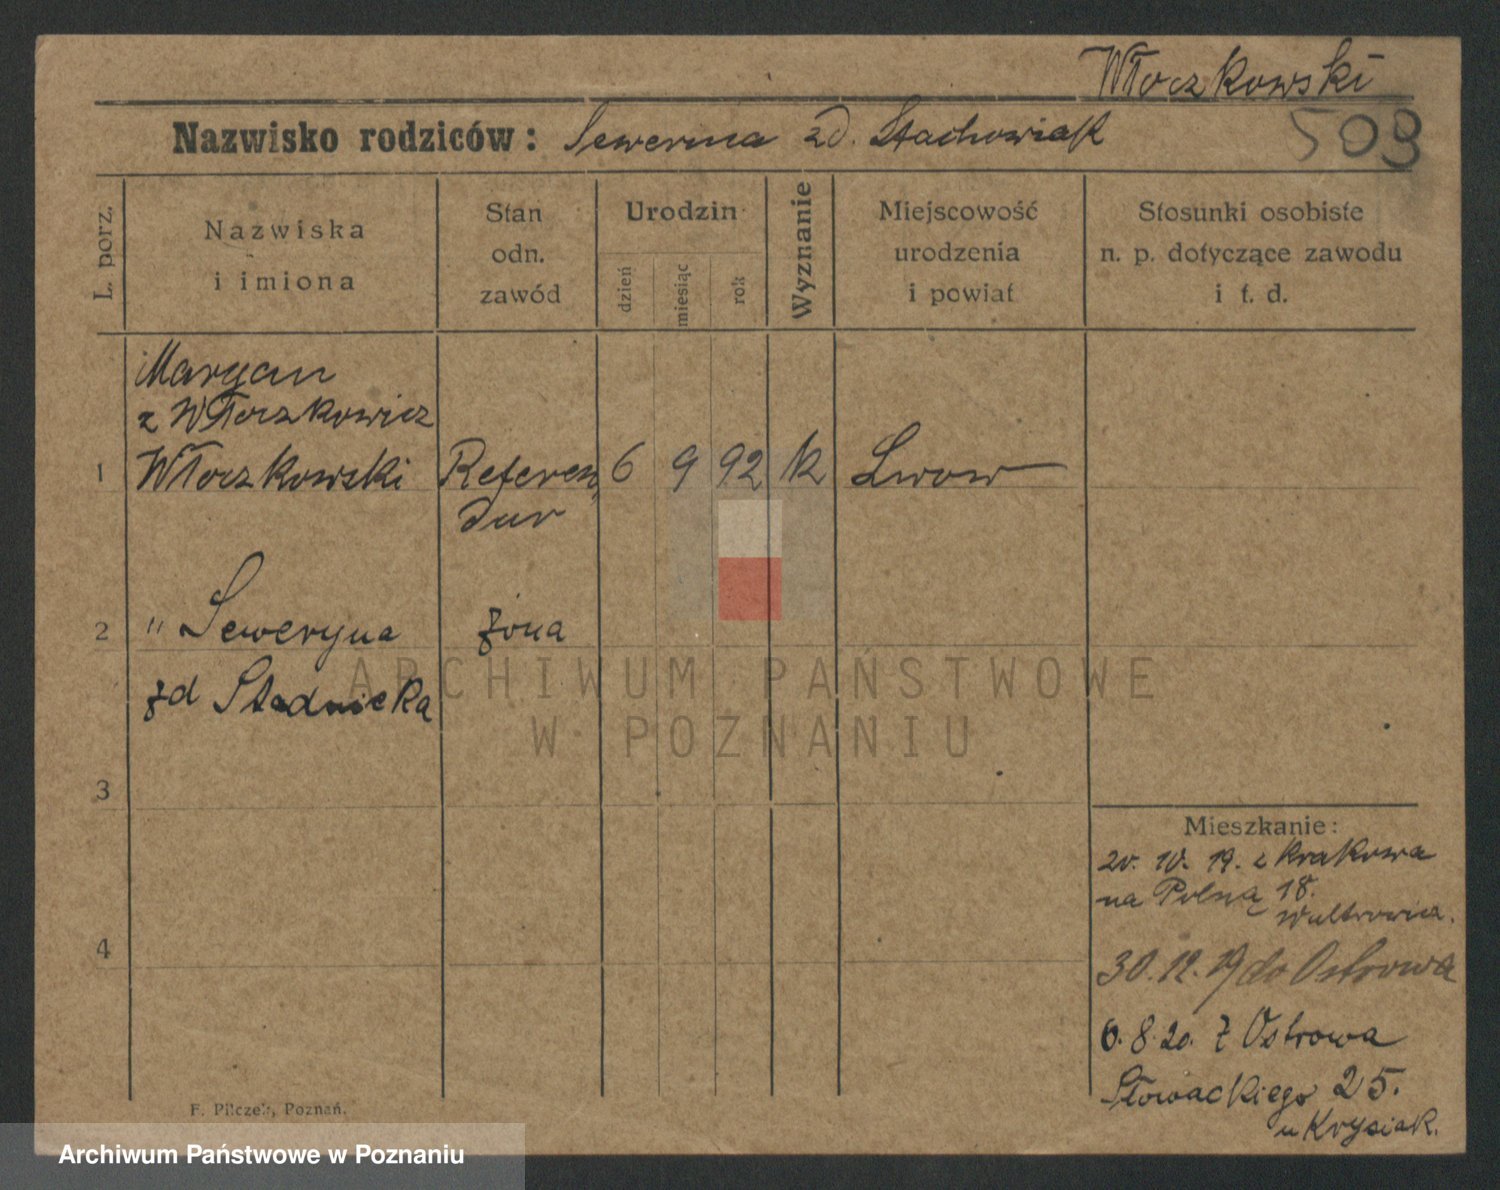 Włoczkowski
Nazwisko rodziców: Sewerina zd. Stachowiak 509
L. porz.
Nazwiska
i imiona
Stan
odn.
zawód
Urodzin
dzień
miesiąc
rok
Wyznanie
Miejscowość
urodzenia
i powiat
Stosunki osobiste
n. p. dotyczące zawodu
i t. d.
Maryan
z Włoczkowicz
1 Włoczkowski Referen 6 9 92 k Lwow
dur
2 " Seweryna żona
zd Stadnicka
ARCHIWUM PAŃSTWOWE
W POZNANIU
3
4
Mieszkanie:
20. 10. 19. z Krakowa
na Polną 18.
30. 12. 19 do Ostrowa
6. 8. 20. z Ostrowa
Słowackiego 25.
u Krysiak.
F. Pilczek, Poznań.
Archiwum Państwowe w Poznaniu